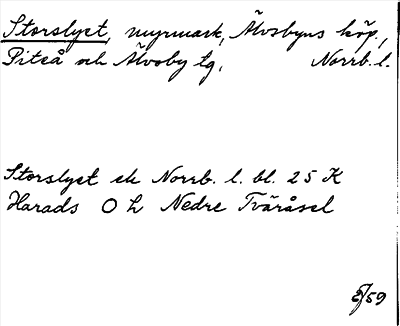 Storslyet, myrmark, Älvsbyns köp.,
Piteå och Älvsby tg. Norrb. l.
Storslyet ek Norrb. l. bl. 25 K
Harads O h Nedre Tväråsel
/59